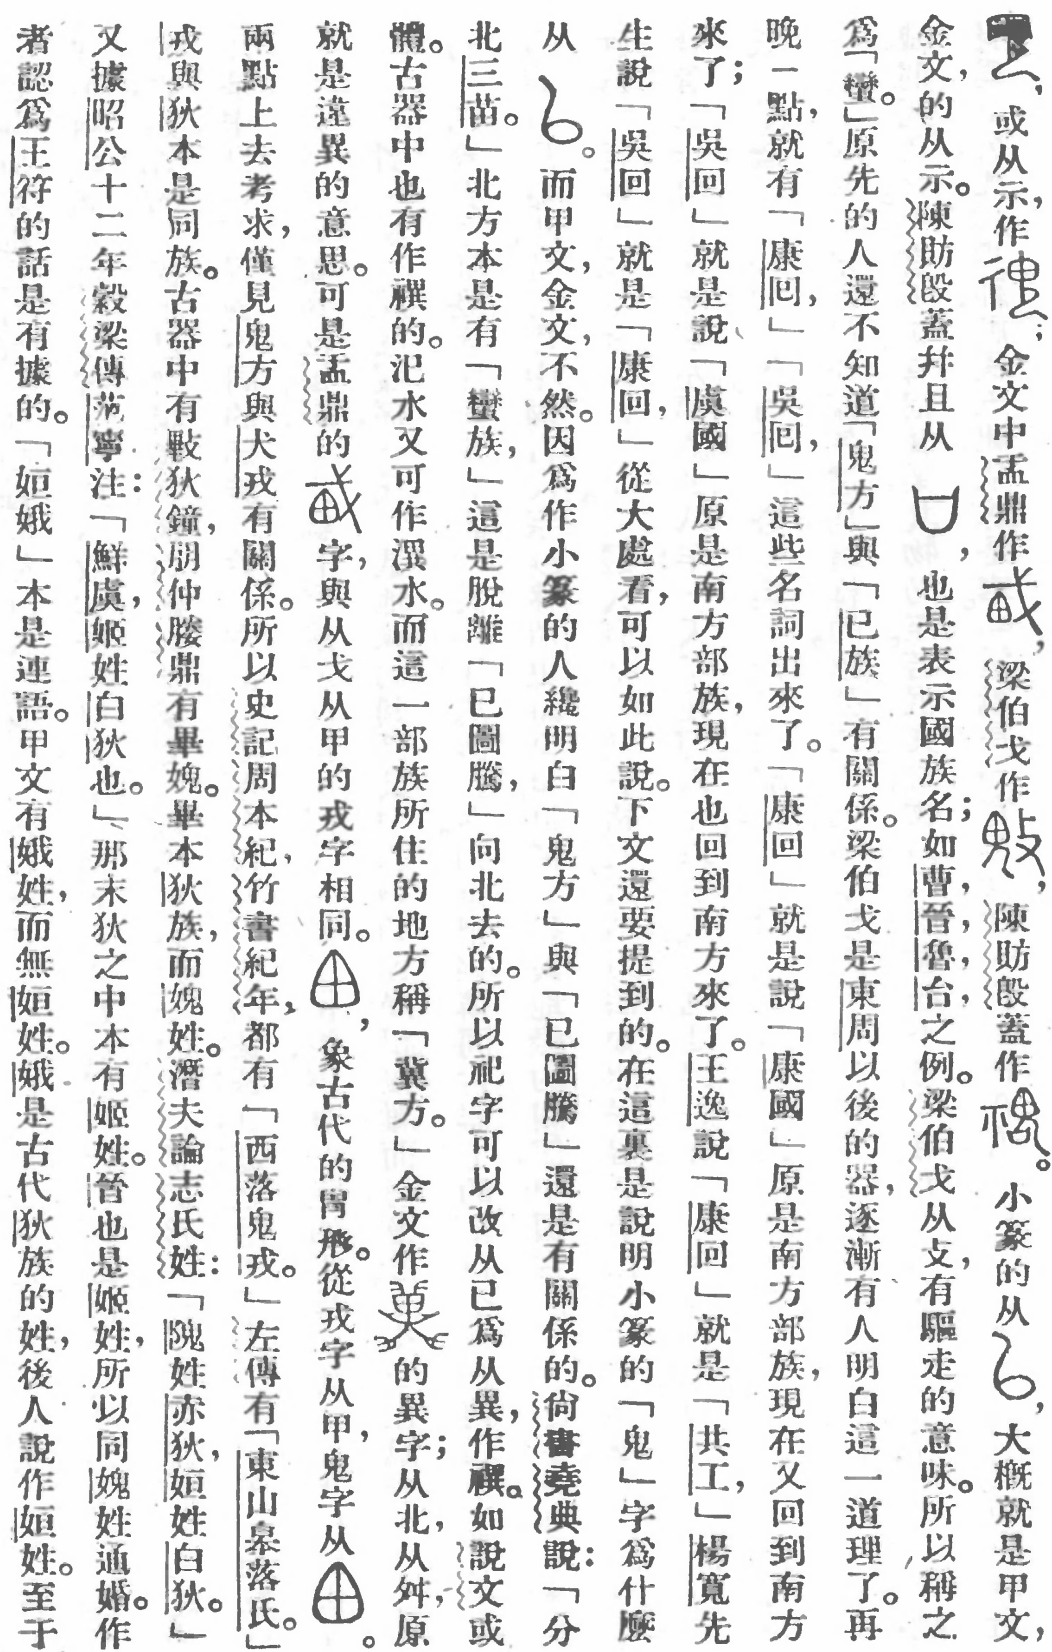 ，或从示，作；金文中盂鼎作，梁伯戈作，陳肪𣪘蓋作。小篆的从，大概就是甲文，
金文，的从示。陳肪𣪘蓋幷且从，也是表示國族名；如曹，晉，魯，台，之例。梁伯戈从攴，有驅走的意味。所以稱之
爲「蠻。」原先的人還不知道「鬼方」與「已族」有關係。梁伯戈是東周以後的器，逐漸有人明白這一道理了。再
晚一點，就有「康囘，」「吳囘，」這些名詞出來了。「康回」就是說「康國」原是南方部族，現在又回到南方
來了；「吳回」就是說「虞國」原是南方部族，現在也回到南方來了。王逸說「康回」就是「共工，」楊寬先
生說「吳回」就是「康回，」從大處看，可以如此說。下文還要提到的。在這裏是說明小篆的「鬼」字爲什麼
从。而甲文，金文，不然。因爲作小篆的人纔明白「鬼方」與「已圖騰」還是有關係的。尙書堯典說：「分
北三苗。」北方本是有「蠻族，」這是脫離「已圖騰，」向北去的。所以祀字可以改从已爲从異，作禩。如說文或
體。古器中也有作禩的。汜水又可作潩水。而這一部族所住的地方稱「冀方。」金文作的異字；从北，从舛，原
就是違異的意思。可是盂鼎的字，與从戈从甲的戎字相同。，象古代的冑形。從戎字从甲，鬼字从。
兩點上去考求，僅見鬼方與犬戎有關係。所以史記周本紀，竹書紀年，都有「西落鬼戎。」左傳有「東山皋落氏。」
戎與狄本是同族。古器中有𣪘狄鐘，朋仲媵鼎有畢媿。畢本狄族，而媿姓。潛夫論志氏姓：「隗姓赤狄，姮姓白狄。」
又據昭公十二年穀梁傳范寧注：「鮮虞，姬姓白狄也。」那末狄之中本有姬姓。晉也是姬姓，所以同媿姓通婚。作
者認爲王符的話是有據的。「姮娥」本是連語。甲文有娥姓，而無姮姓。娥是古代狄族的姓，後人說作姮姓。至于